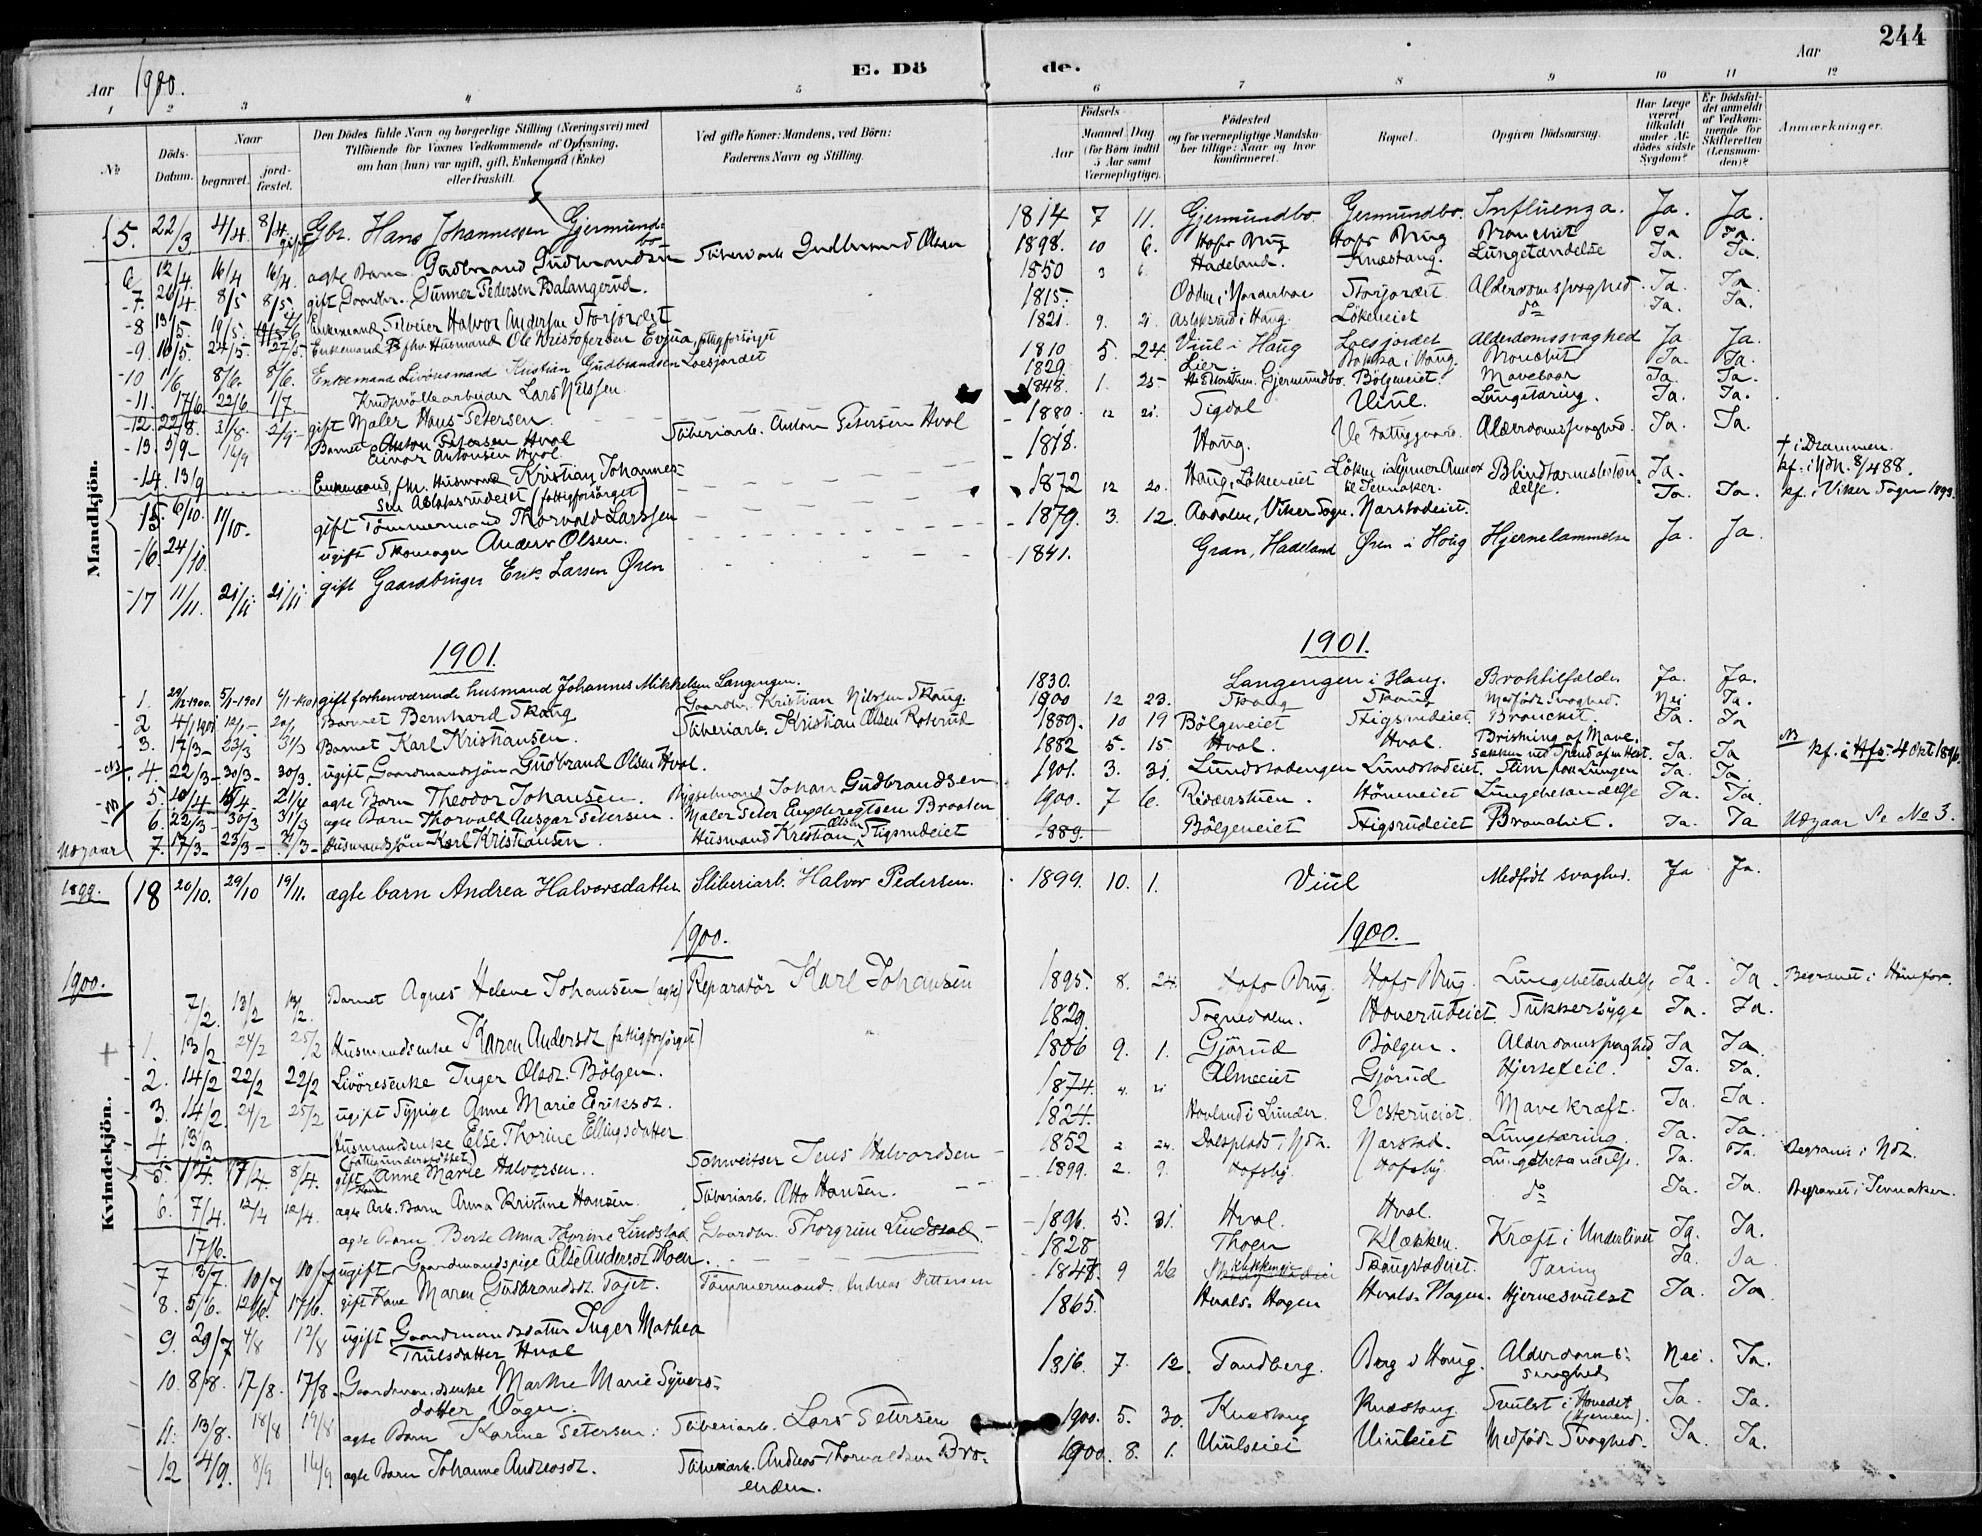 244
E. Dö de.
Aar 1900. Aar
1 2 3 4 5 6 7 8 9 10 11 12
№ Döds-Datum. Naar begravet. jord-fæstet. Den Dödes fulde Navn og borgerlige Stilling (Næringsvei) med Tilföiende for Voxnes Vedkommende af Oplysning, om han (hun) var ugift, gift, Enkemand (Enke) eller fraskilt. Ved gifte Koner: Mandens, ved Börn: Faderens Navn og Stilling. Födsels Aar Maaned Dag (for Börn indtil 5 Aar samt Værnepligtige). Födested og for værnepligtige Mandskaber tillige: Naar og hvor konfirmeret. Bopæl. Opgiven Dödsaarsag. Har Læge været tilkaldt under Afdödes sidste Sygdom? Er Dödsfaldet anmeldt af Vedkommende for Skifteretten (Lensmanden)? Anmærkninger.
Mandkjön.
5. 22/3 4/4 8/4 Gbr. Hans Johannessen Gjermundbo gift 1814 7 11. Gjermundbo. Germundbo. Influenza. Ja. Ja.
6 12/4 16/4 16/4. ægte Barn Gudbrand Gudbrandsen Sliberiarb Gudbrand Olsen 1898. 10 6. Hofs Brug Hofs Brug Bronchit Ja Ja.
7. 26/4 8/5 8/5 gift Gaardbr. Gunner Pedersen Balangerud. 1850 3 6. Hadeland. Knæstang. Lungebetændelse Ja. Ja.
8 13/5. 19/5. Enkemand Halvor Andersen Storjordet 1815. Odden i Norderhov Storjordet Alderdomssvaghed. Ja. Ja.
9. 16/5. 24/5. 27/5 Enkemand Fhv. Husmand Ole Kristofersen Evjua, fattigforsörget 1821. 9. 21. Aslaksrud i Haug. Lökeneiet do Ja. Ja.
10 1/6 8/6. 8/6. Enkemand Livöresmand Kristian Gudbrandsen Loesjordet 1810 5. 24. Viul i Haug Loesjordet Alderdomssvaghed Ja Ja.
11. 17/6. 22/6 1/7. Krudmöllearbeider Lars Nilssen 1829. Lier Bakka i Haug. Bronchit Ja. Ja.
12. 22/8. 31/8 2/9 gift Maler Hans Petersen. 1848. 1. 25 Gjermundbo. Bölgeneiet. Mavesaar Ja. Ja.
13. 5/9 16/9 Barnet Einar Antonsen Hval Sliberiarb. Anton Petersen Hval 1880. 12 21. Sigdal Viul. Lungetæring. Ja. Ja.
14. 13/9 Enkemand fhv. Husmand Kristian Johannessen Aslaksrudeiet (fattigforsörget) 1818. Haug. Ve Fattiggaard. Alderdomssvaghed. Ja. Ja.
15. 6/10. 11/10. gift Tömmermand Thorvald Larssen 1872 12 20. Haug, Lökeneiet Löken i Lunner Annex til Jevnaker. Blindtarmsbetændelse. Ja. † i Drammen. kf. i Ndh. 8/4 88.
16. 24/10. ugift Skomager Anders Olsen. 1879. 3. 12. Aadalen, Viker Sogn. Narstadeiet. Ja. Ja. kf. i Viker Sogn 1893.
17 11/11. 21/11. 21/11 gift Gaardbruger Erik Larsen Ören 1841. Gran, Hadeland Ören i Houg Hjernelammelse Ja. Ja.
1901. 1901.
1. 29/12 1900. 5/1-1901 6/1-1901 gift forhenværende husmand Johannes Mikkelsen Langengen. 1830. Langengen i Haug. Broktilfælde. Ja. Ja.
2 4/1 1901 12/1 20/1 Barnet Bernhard Skaug Gaardbr. Kristian Nilsen Skaug. 1900 12 23. Skaug Skaug Medfödt Svaghed. Nei Ja.
3. 17/3 23/3 31/3 Barnet Karl Kristiansen. Sliberiarb. Kristian Olsen Roserud 1889. 10 19 Bölgeneiet Stigsrudeiet Bronchit. Ja. Ja
NB 4. 22/3 30/3 30/3. ugift Gaardmandssön Gudbrand Olsen Hval. 1882 5. 15. Hval. Hval. Bristning af Mavesækken ved Spand af en Hest. Ja. Ja NB kf. i Hfs. 4 Okt 1896.
5. 10/4 15/4 21/4 ægte Barn Theodor Johansen. Johan Gudbrandsen 1901. 3. 31. Lundstadengen Lundstadeiet. Slim paa Lungen Ja. Ja.
NB 6. 22/3 30/3 31/3 ægte Barn Thorvald Ansgar Petersen Maler Peter Engebregtsen Braaten 1900. 7 6. Ridderstuen. Hönneneiet Lungebetændelse Ja. Ja.
Udgaar 7. 17/3 23/3 31/3 Husmandssön Karl Kristiansen. Husmand Kristian Olsen Stigsrudeiet 1889. Bölgeneiet Stigsrudeiet Bronchit. Ja. Ja Udgaar Se No 3.
1899. 18 20/10. 29/10 19/11. ægte barn Andrea Halvorsdatter Sliberiarb. Halvor Pedersen. 1899. 10. 1. Viul Medfödt svaghed. Ja Ja.
1900. 1900.
1900.
Kvindekjön.
7/2. 13/2 13/2. Barnet Agnes Helene Johansen (ægte) Reparatör Karl Johansen 1895. 8. 24. Hofs Brug. Hofs Brug. Lungebetændelse Ja. Ja. Begravet i Hönefos.
1. 13/2. 24/2 25/2 Husmandsenke Karen Andersdt. (fattigforsörget) 1829. Sognedalen. Honerudeiet. Sukkersyge Ja. Ja.
2. 14/2 22/2 22/2 Livöresenke Inger Olsdt. Bölgen. 1806 9. 1. Gjörud Bölgen. Alderdomssvaghed Ja Ja.
3. 14/2. 24/2 25/2 ugift Sypige Anne Marie Eriksdt. 1874. 4. 21 Almeeiet Gjörud Hjertefeil. Ja. Ja.
4. 13/3. Husmandsenke Else Thorine Ellingsdatter (fattigunderstöttet) 1824. Hovland i Lunder. Vesterneiet. Mavekræft. Ja. Ja.
5. 1/4. 17/4. 8/4. gift Kone Anne Marie Halvorsen. Schweitser Jens Halvordsen 1852 2 24. Dalsplads i Ndr. Narstad. Lungetæring. Ja. Ja. Begravet i Ndr.
6. 7/4. 12/4 12/4. ægte Arb. Barn Anna Kristine Hansen. Sliberiarb. Otto Hansen. 1899. 2. 9. Hofsby. Hofsby. Lungebetændelse. Ja. Ja. Begravet i Jevnaker.
17/6. ægte Barn Berte Anna Thorine Lindstad Gaardbr. Thorgrim Lindstad. 1896. 5. 31. Hval. Hval. do Ja. Ja.
7 3/7. 10/7 10/7 ugift Gaardmandspige Else Andersdt Thoen. 1828 Thoen Klækken. Kræft i Underlivet Ja. Ja.
8. 5/6. 12/6. 17/6. gift Kone Maren Gudbrandsdt. Tajet. Tömmermand. Andreas Pettersen 1847. 9 26 Klækkeneie Skaugstadeiet. Tæring Ja. Ja
9. 29/7 4/8 12/8 ugift Gaardmandsdatter Inger Mathea Trulsdatter Hval 1865. Hvals-Hagen Hvals-Hagen. Hjernesvulst Ja. Ja.
10. 8/8. 17/8. 17/8. Gaardmandsenke Marthe Marie Syversdatter Vagen. 1816. 7. 12. Tandberg. Berg i Houg. Alderdomssvaghed Nei. Ja.
11. 13/8. 18/8 19/8 ægte Barn Karine Petersen. Sliberiarb. Lars Petersen 1900. 5. 30. Knæstang Knæstang. Svulst i Hovedet (Hjernen). Ja. Ja.
12 4/9. 8/9 16/9 ægte Barn Johanne Andreasdt. Sliberiarb. Andreas Thorvaldsen Broenden. 1900. 8. 1. Viulseiet Viuleiet Medfödt Svaghed. Ja. Ja.